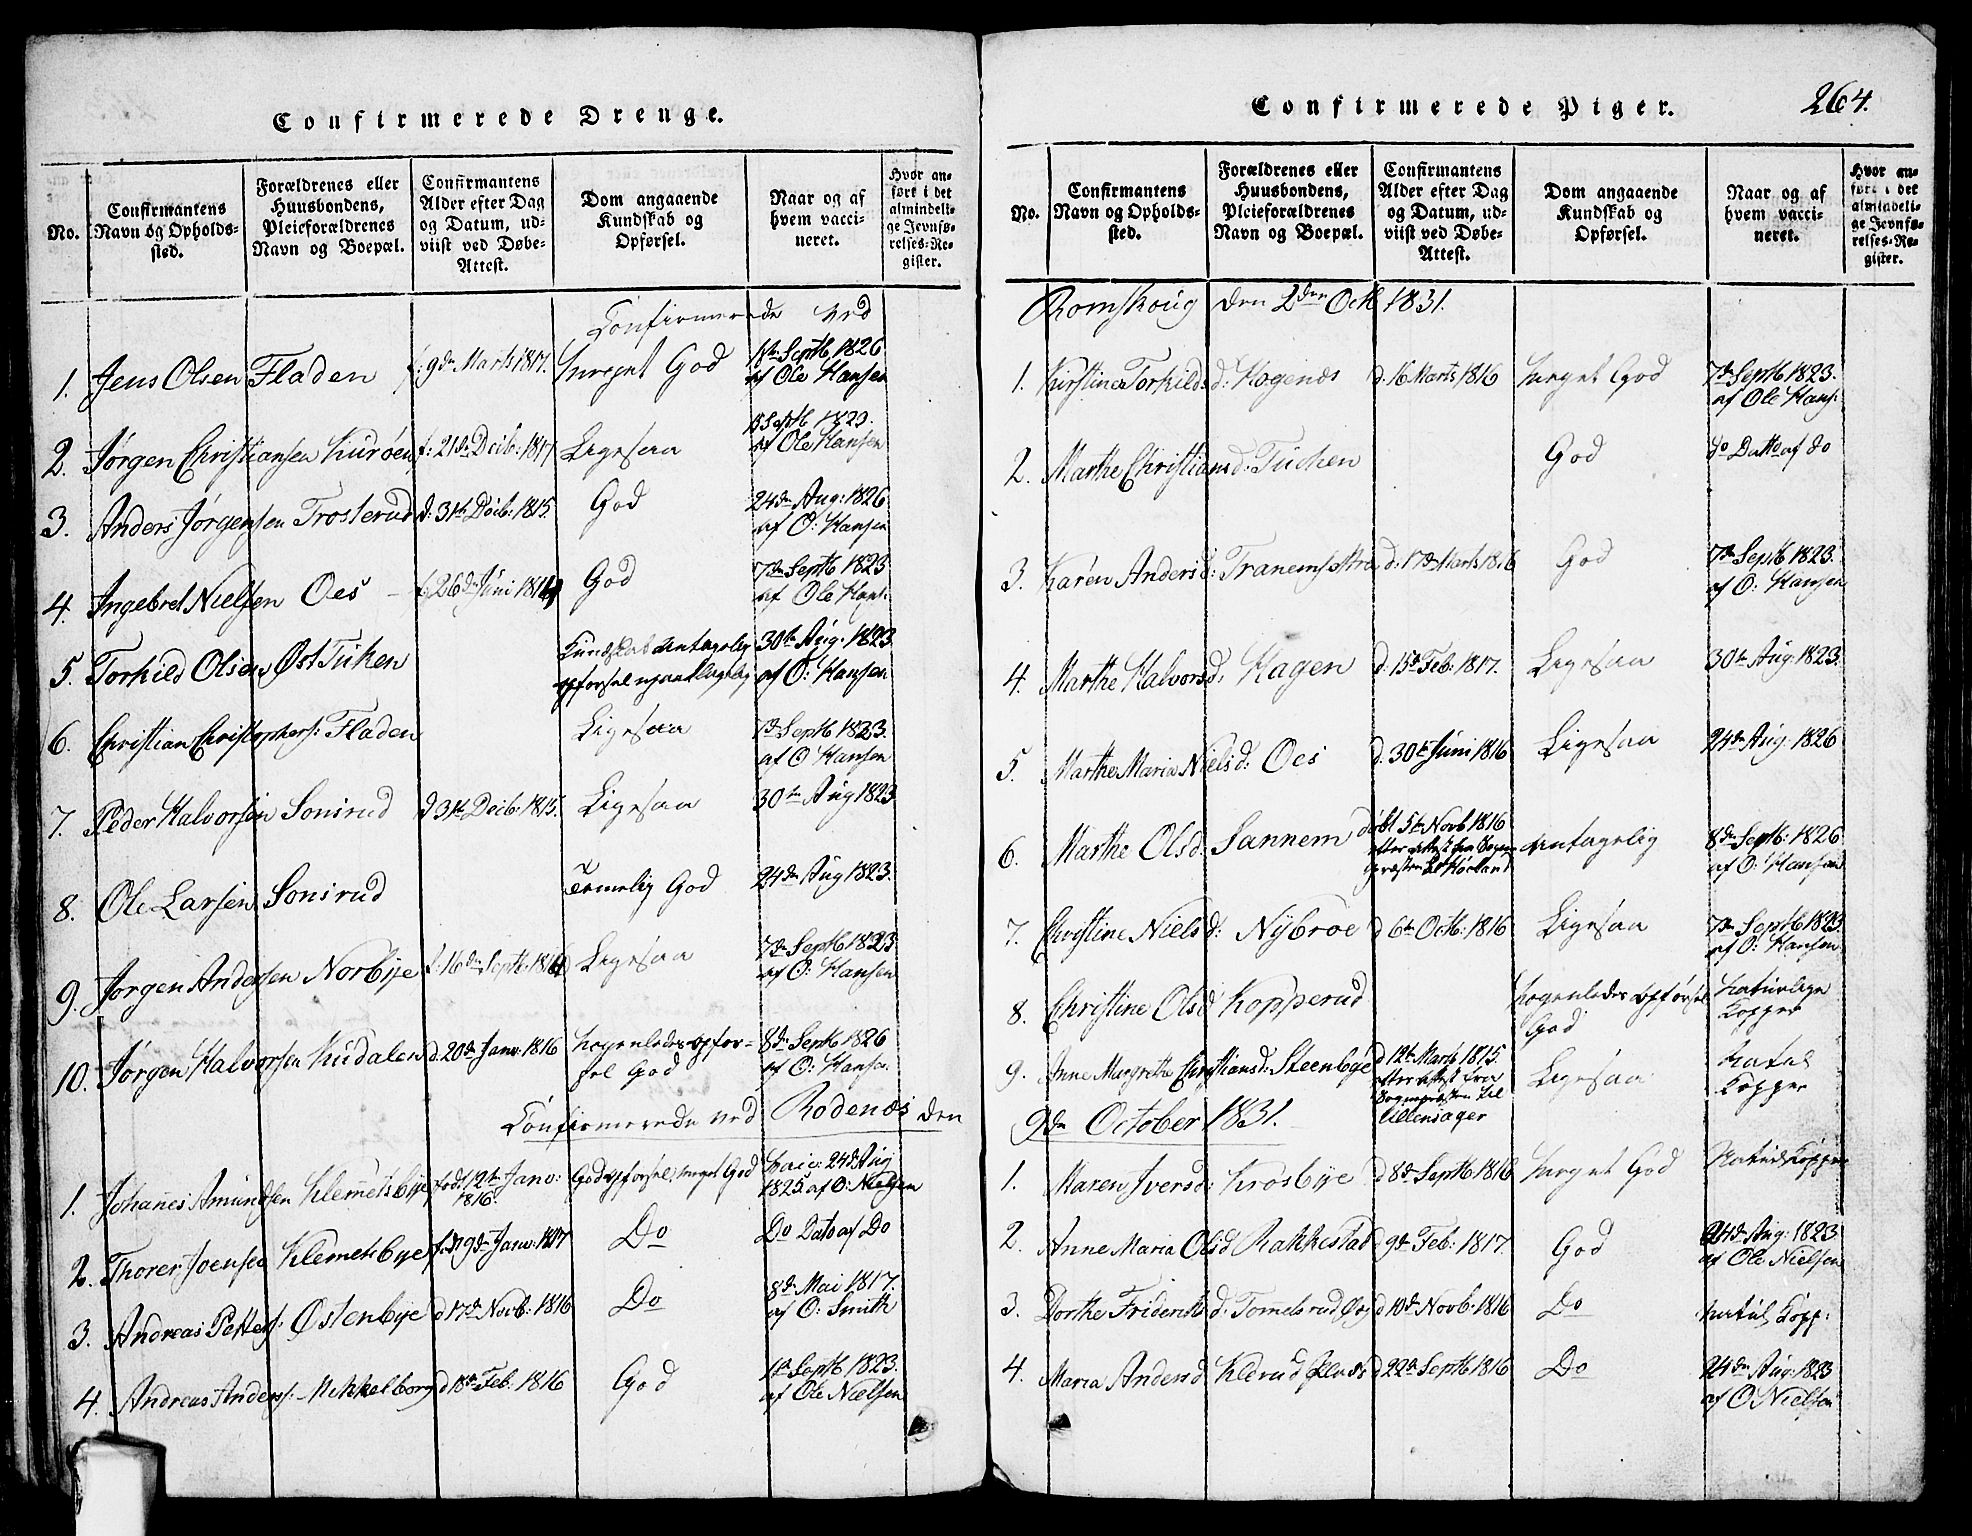 Confirmerede Drenge.
No.
Confirmantens Navn og Opholdssted.
Forældrenes eller Huusbondens, Pleieforældrenes Navn og Boepæl.
Confirmantens Alder efter Dag og Datum, udviist ved Døbe-Attest.
Dom angaaende Kundskab og Opførsel.
Naar og af hvem vaccineret.
Hvor anført i det almindelige Jevnførelses-Register.
Confirmerede ved
1. Jens Olsen Fladen f: 9de Marts 1817. meget God 1ste Septb 1826 af Ole Hansen
2. Jørgen Christiansen Kurøen f: 21de Decb: 1817 Ligesaa Septb 1823. af Ole Hansen
3. Anders Jørgensen Trosterud d: 31te Decb: 1815. God 24de Aug: 1826 af O: Hansen
4. Ingebret Nielsen Oes f 26de Juni God 7de Septb 1823 af Ole Hans:
5. Torkild Olsen Øst Tuken Kundskab antagelig opførsel 30te Aug. 1823 af O: Hansen
6. Christian Christophers: Fladen Ligesaa 7de Septb 1823. af O Hansen
7. Peder Halvorsen Sonsrud d 31te Decb: 1815. Ligesaa 30te Aug 1823
8. Ole Larsen Sonsrud Temelig God 24de Aug 1823.
9. Jørgen Andersen Norbye f: 16de Septb: Ligesaa 7de Septb 1823 af O: Hansen
10. Jørgen Halvorsen Kudalen d. 20de Janv: 1816 nogenledes opførsel God 8de Septb 1826 af O: Hansen
Confirmerede ved Rodenæs den
1. Johanes Amundsen Klemetsbye født 12te Janv: 1816. God opførsel, meget God 24de Aug 1825 af O: Nielsen
2. Thorer Joensen Klemetsbye født 9de Janv: 1817 Do Do Dato af Do
3. Andreas Petters: Østenbye d 17de Novb: 1816 Do 8de Mai 1817. af O: Smith
4. Andreas Anders: Mekkelborg d 18de Feb: 1816 God 1ste Septb 1823. af Ole Nielsen
Confirmerede Piger. 264.
No.
Confirmantens Navn og Opholdssted.
Forældrenes eller Huusbondens, Pleieforældrenes Navn og Boepæl.
Confirmantens Alder efter Dag og Datum, udviist ved Døbe-Attest.
Dom angaaende Kundskab og Opførsel.
Naar og af hvem vaccineret.
Hvor anført i det almindelige Jevnførelses-Register.
Romskoug den 2den Octb 1831.
1. Kirstine Torkilds d: Hogenæs d. 16 Marts 1816 meget God 7de Septb 1823. af Ole Hans:
2. Marthe Christians d: Tuken God do Datto af do
3. Karen Anders d: d: 17de Marts 1816 God 7de Septb 1823. af O: Hansen
4. Marthe Halvors d, Hagen d. 15de Feb: 1817. Ligesaa 30te Aug: 1823.
5. Marthe Maria Niels d: Oes d. 30te Juni 1816 Ligesaa 24de Aug: 1826
6. Marthe Olsd: Sannem døbt 5te Novb 1816 efter Attest fra Sogne præsten til Høeland Antagelig 8de Septb: 1826 af O: Hansen
7. Christine Niels d: Nybroe d 6te Octb: 1816 Ligesaa 7de Septb 1823. af O: Hansen
8. Christine Olsd Kopperud nogenledes opførsel God Naturlige Kopper
9. Anne Margrethe Christiansd: Steenbye d 12te Marts 1815. efter Attest fra Sognepræsten til Ullensager Ligesaa Natul Kopper
9de October 1831.
1. Maren Iversd: Krosbye d 8de Septb 1816 meget God Natuel Kopper
2. Anne Maria Olsd Rakkestad d 9de Feb: 1817. God 24de Aug: 1823. af Ole Nielsen
3. Dorthe Friderichs d: d 10de Novb: 1816 Do Natul Kopp:
4. Maria Andersd Klerud Plads d 22de Septb 1816 Do 24de Aug: 1823 af O Nielsen